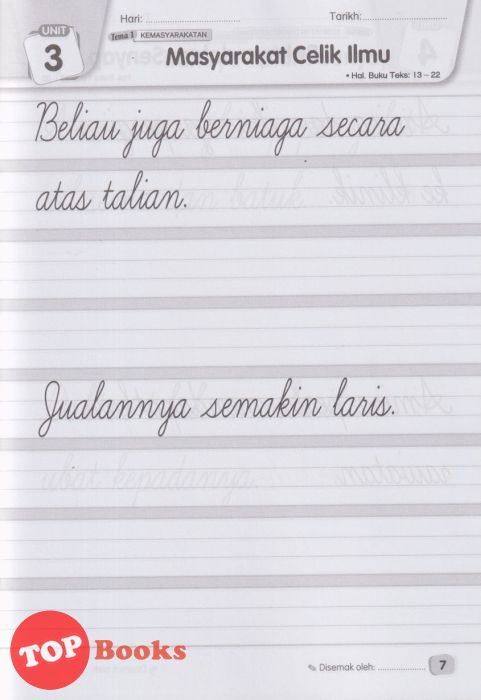 Hari:
Tarikh:
UNIT
3
Tema 1
KEMASYARAKATAN
Masyarakat Celik Ilmu
• Hal. Buku Teks: 13 – 22
Beliau juga berniaga secara
atas talian.
Jualannya semakin laris.
ubat kepadanya.
TOP Books
✎ Disemak oleh:
7